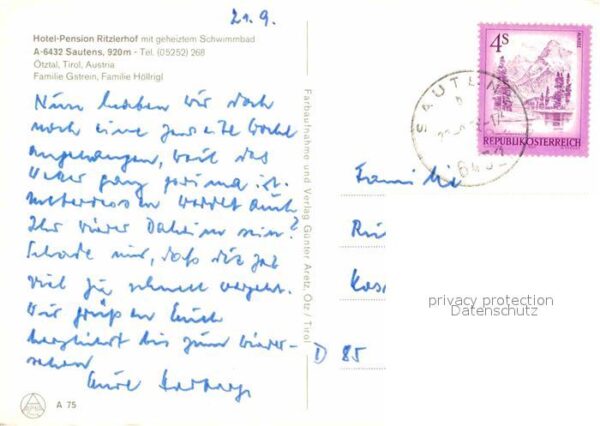 21.9.
Hotel-Pension Ritzlerhof mit geheiztem Schwimmbad
A-6432 Sautens, 920m - Tel. (05252) 268
Ötztal, Tirol, Austria
Familie Gstrein, Familie Höllrigl
Nun haben wir doch
noch eine zweite Woche
angehangen, weil das
Wetter ganz prima ist.
Inzwischen werdet auch
Ihr wieder Daheim sein?
Schade nur, daß die Zeit
viel zu schnell vergeht.
Wir grüßen Euch
herzlichst bis zum Wieder-
sehen
A 75
Farbaufnahme und Verlag Günter Aretz, Ötz / Tirol
4S
REPUBLIK ÖSTERREICH
SAUTENS
Familie
D 85
privacy protection
Datenschutz